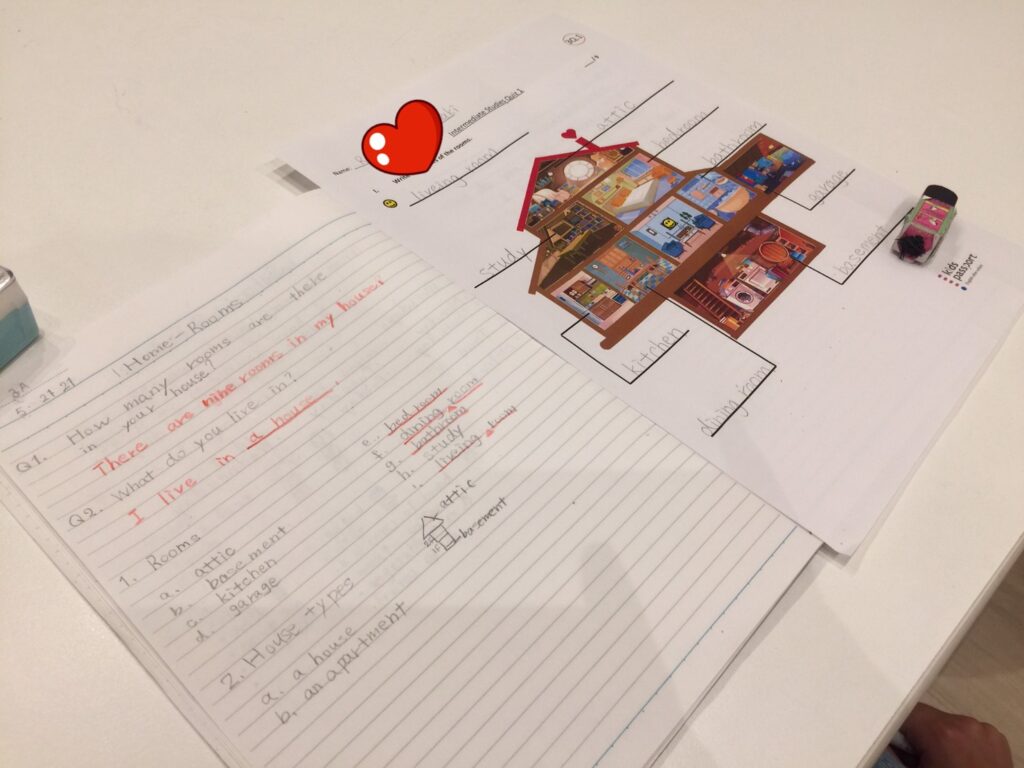 3A
5. 21 21
Home - Rooms
Q1. How many rooms are there
in your house?
There are nine rooms in my house.
Q2. What do you live in?
I live in a house.
1. Rooms
a. attic
b. basement
c. kitchen
d. garage
e. bed room
f. dining room
g. bathroom
h. study
i. liveing room
attic
basement
2. House types
a. a house
b. an apartment
Name:
Intermediate Studies Quiz
1. of the rooms.
liveing room
attic
bedroom
bathroom
garage
basement
study
kitchen
dining room
kids
passport